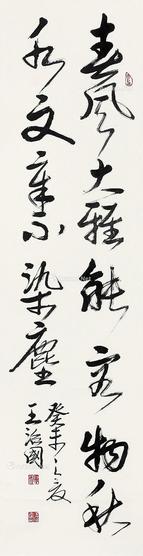 春風大雅能容物秋
水文章不染塵
癸未之夏
王治國